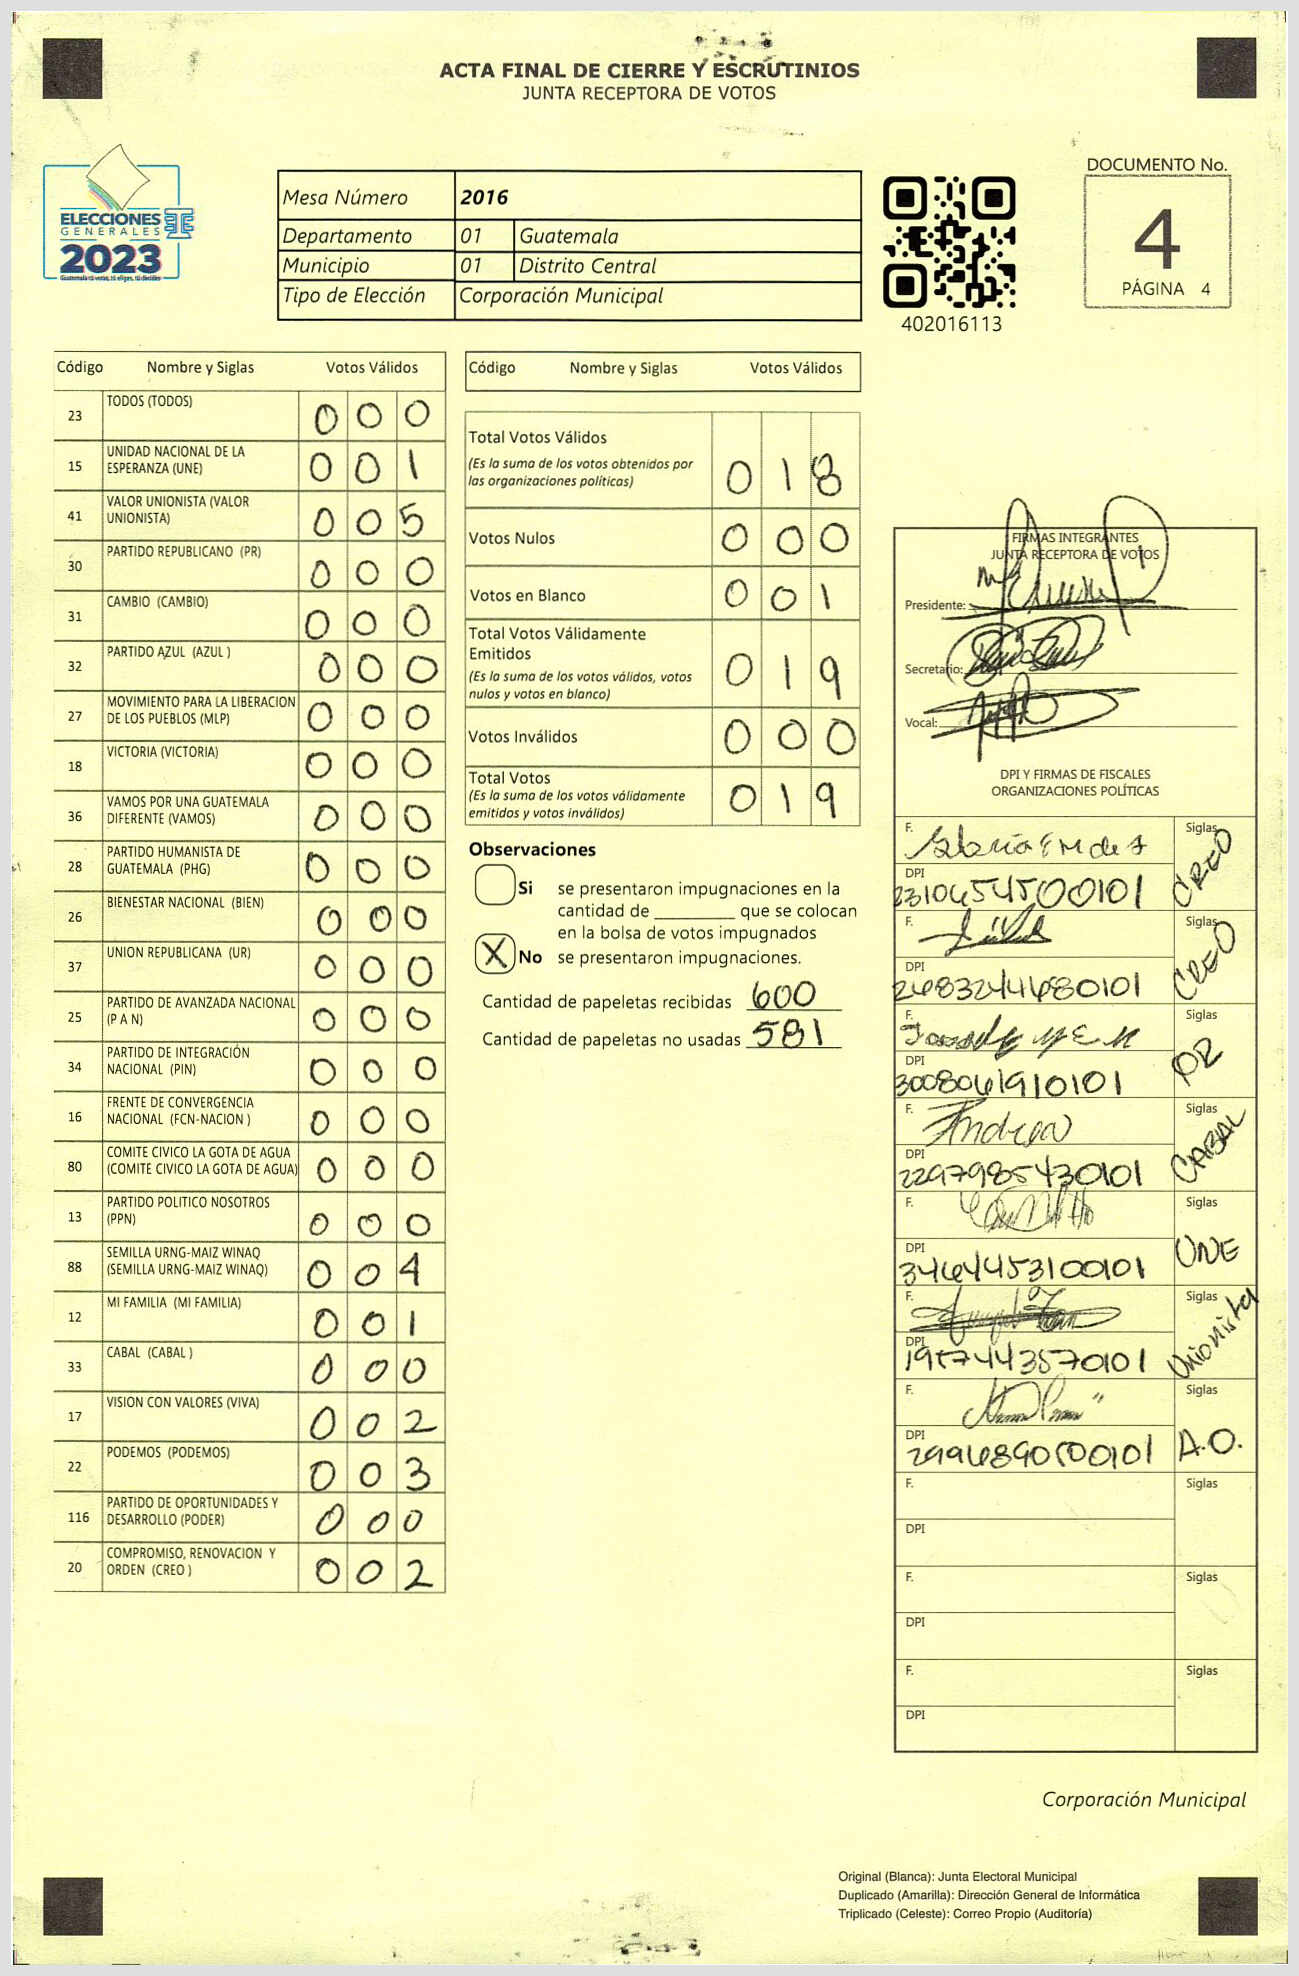 ACTA FINAL DE CIERRE Y ESCRUTINIOS
JUNTA RECEPTORA DE VOTOS
ELECCIONES
GENERALES
2023
Guatemala tú votas, tú eliges, tú decides
Mesa Número 2016
Departamento 01 Guatemala
Municipio 01 Distrito Central
Tipo de Elección Corporación Municipal
402016113
DOCUMENTO No.
4
PÁGINA 4
Código Nombre y Siglas Votos Válidos
23 TODOS (TODOS) 0 0 0
15 UNIDAD NACIONAL DE LA ESPERANZA (UNE) 0 0 1
41 VALOR UNIONISTA (VALOR UNIONISTA) 0 0 5
30 PARTIDO REPUBLICANO (PR) 0 0 0
31 CAMBIO (CAMBIO) 0 0 0
32 PARTIDO AZUL (AZUL ) 0 0 0
27 MOVIMIENTO PARA LA LIBERACION DE LOS PUEBLOS (MLP) 0 0 0
18 VICTORIA (VICTORIA) 0 0 0
36 VAMOS POR UNA GUATEMALA DIFERENTE (VAMOS) 0 0 0
28 PARTIDO HUMANISTA DE GUATEMALA (PHG) 0 0 0
26 BIENESTAR NACIONAL (BIEN) 0 0 0
37 UNION REPUBLICANA (UR) 0 0 0
25 PARTIDO DE AVANZADA NACIONAL (P A N) 0 0 0
34 PARTIDO DE INTEGRACIÓN NACIONAL (PIN) 0 0 0
16 FRENTE DE CONVERGENCIA NACIONAL (FCN-NACION ) 0 0 0
80 COMITE CIVICO LA GOTA DE AGUA (COMITE CIVICO LA GOTA DE AGUA) 0 0 0
13 PARTIDO POLITICO NOSOTROS (PPN) 0 0 0
88 SEMILLA URNG-MAIZ WINAQ (SEMILLA URNG-MAIZ WINAQ) 0 0 4
12 MI FAMILIA (MI FAMILIA) 0 0 1
33 CABAL (CABAL ) 0 0 0
17 VISION CON VALORES (VIVA) 0 0 2
22 PODEMOS (PODEMOS) 0 0 3
116 PARTIDO DE OPORTUNIDADES Y DESARROLLO (PODER) 0 0 0
20 COMPROMISO, RENOVACION Y ORDEN (CREO ) 0 0 2
Código Nombre y Siglas Votos Válidos
Total Votos Válidos 0 1 8
(Es la suma de los votos obtenidos por
las organizaciones políticas)
Votos Nulos 0 0 0
Votos en Blanco 0 0 1
Total Votos Válidamente
Emitidos 0 1 9
(Es la suma de los votos válidos, votos
nulos y votos en blanco)
Votos Inválidos 0 0 0
Total Votos 0 1 9
(Es la suma de los votos válidamente
emitidos y votos inválidos)
Observaciones
Si se presentaron impugnaciones en la
cantidad de ________ que se colocan
en la bolsa de votos impugnados
X No se presentaron impugnaciones.
Cantidad de papeletas recibidas 600
Cantidad de papeletas no usadas 581
FIRMAS INTEGRANTES
JUNTA RECEPTORA DE VOTOS
Presidente:
Secretario:
Vocal:
DPI Y FIRMAS DE FISCALES
ORGANIZACIONES POLÍTICAS
F. Siglas CREO
DPI 2310654500101
F. Siglas CREO
DPI 2683244680101
F. Siglas PR
DPI 3008061910101
F. Andrea Siglas CABAL
DPI 2297985430101
F. Siglas UNE
DPI 3464453100101
F. Siglas Unionista
DPI
F. Siglas A.O.
DPI
F. Siglas
DPI
F. Siglas
DPI
F. Siglas
DPI
Corporación Municipal
Original (Blanca): Junta Electoral Municipal
Duplicado (Amarilla): Dirección General de Informática
Triplicado (Celeste): Correo Propio (Auditoría)